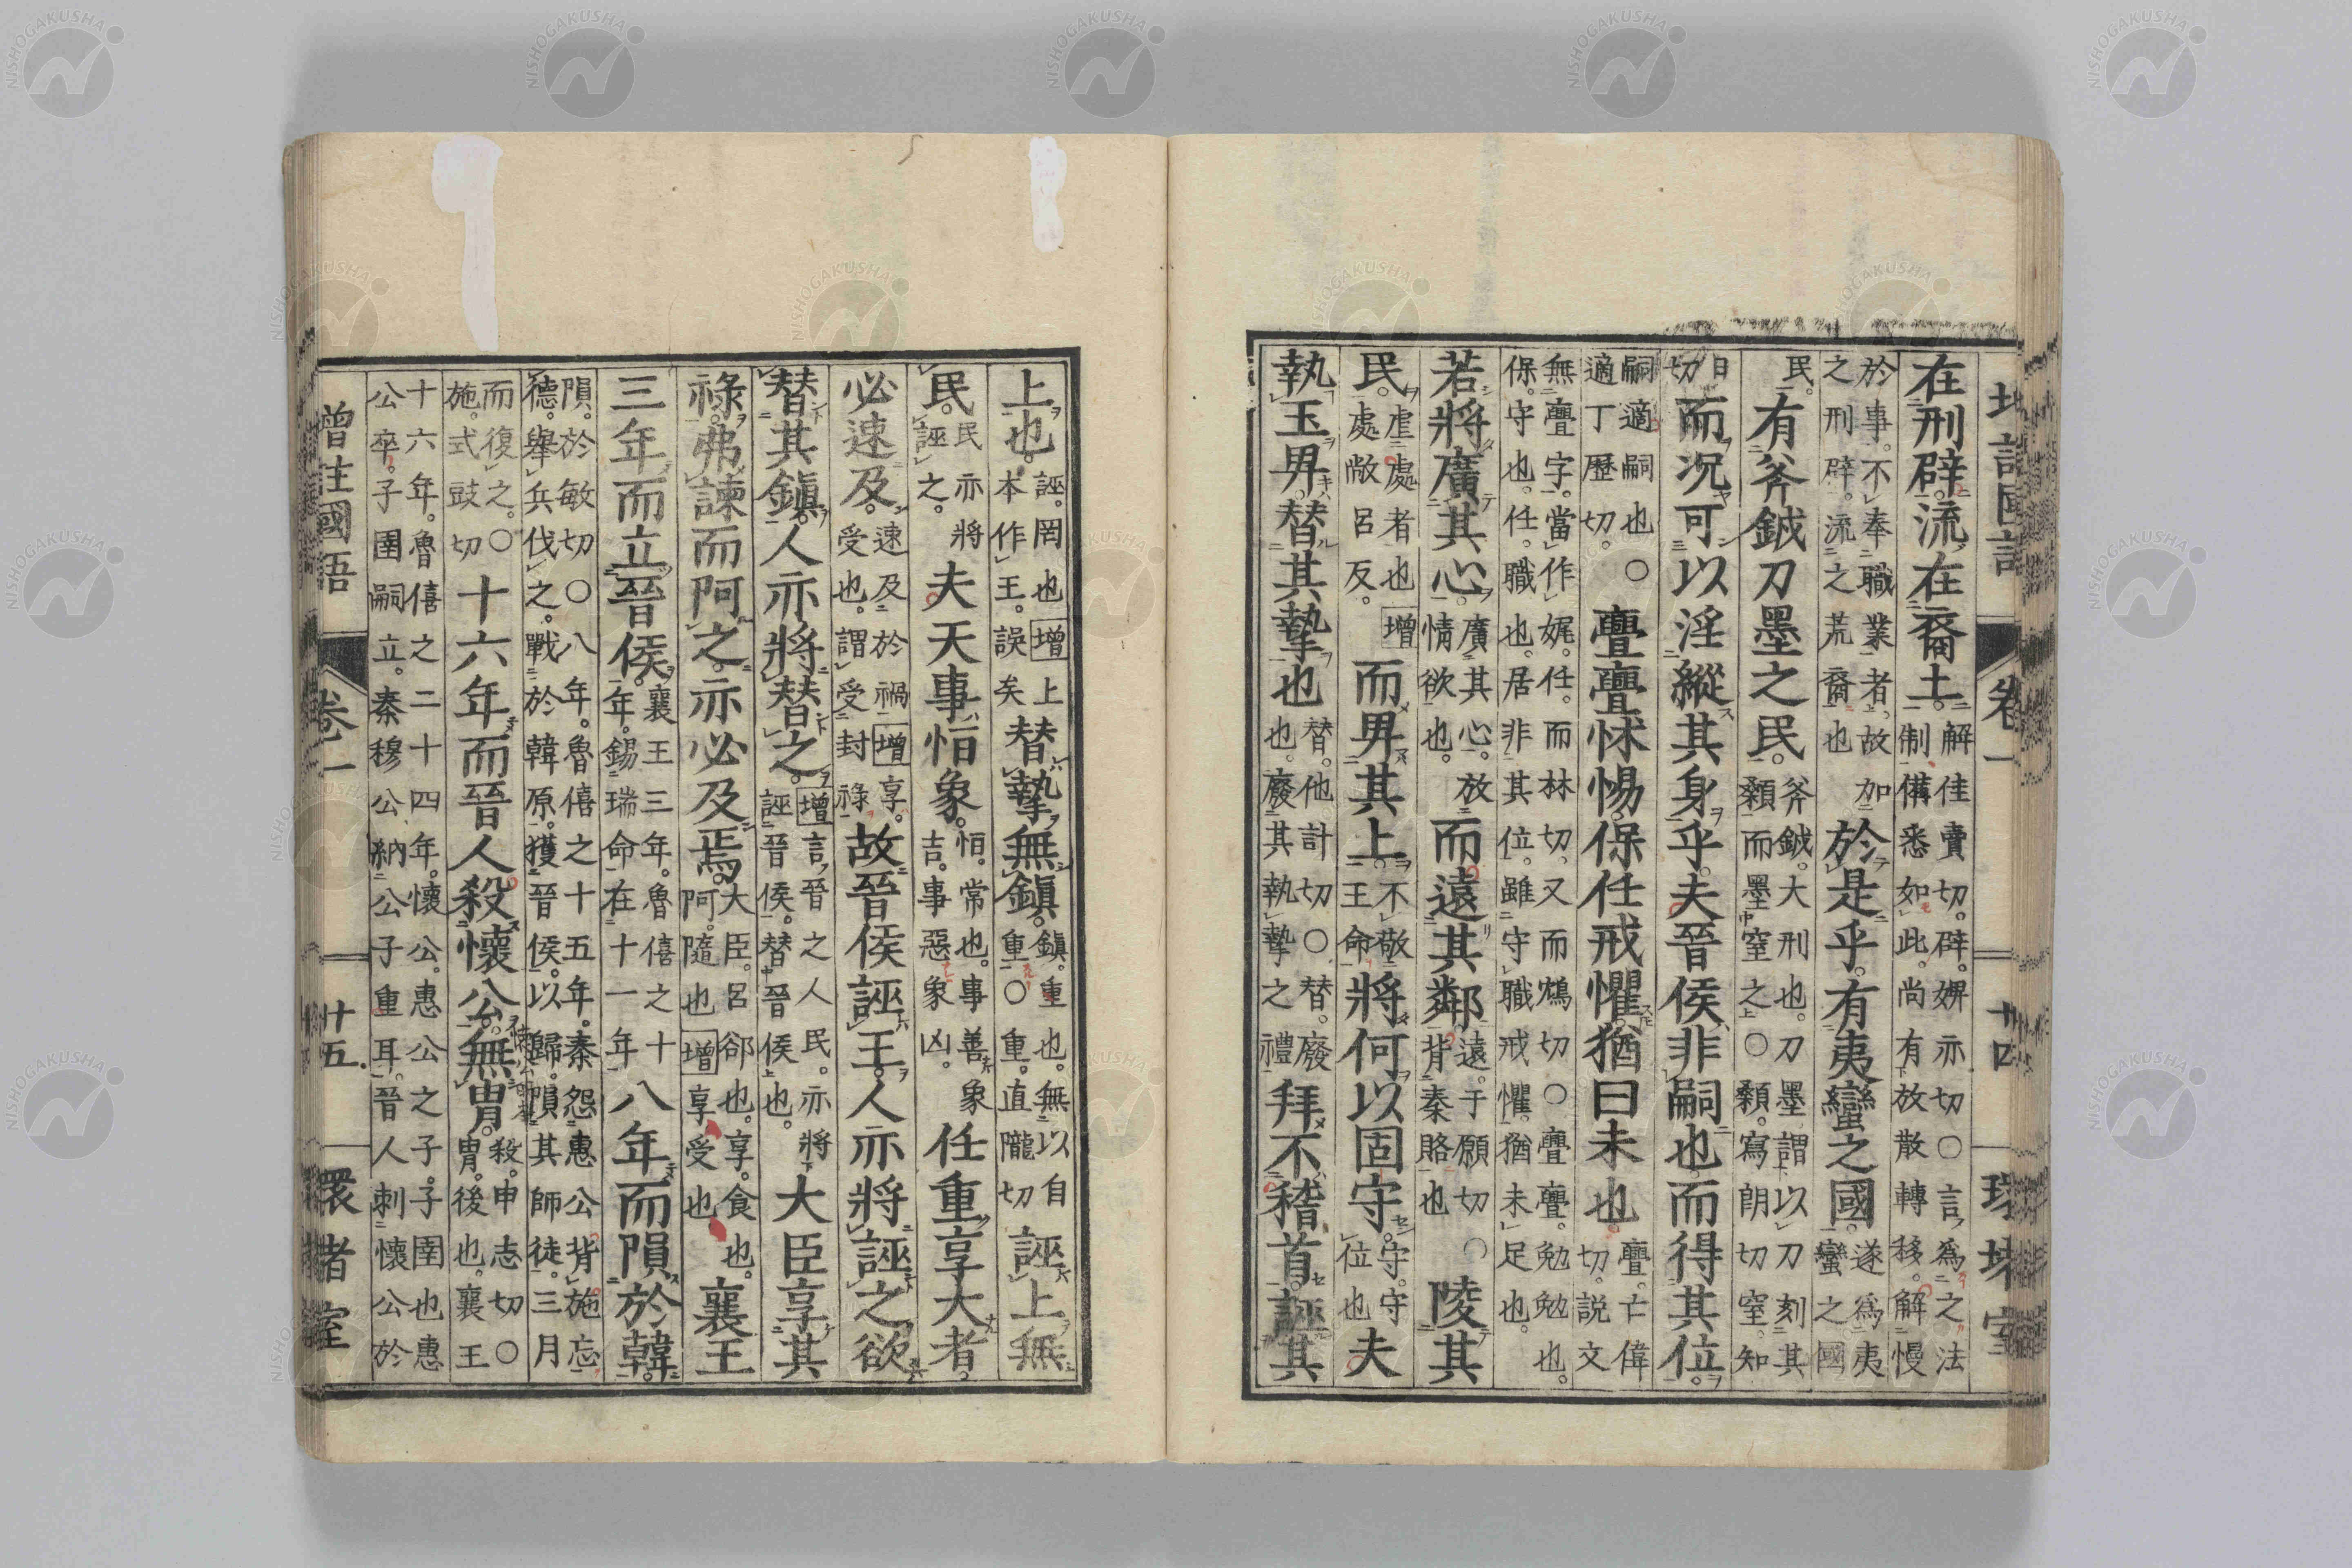 在刑辟。流在裔土。解佳賣切。辟。婢亦切○言爲之法
制備悉如此。尚有放散轉移。解慢
於事。不奉職業者。故加
之刑辟。流之荒裔也
於是乎。有夷蠻之國。遂爲夷
蠻之國
民。有斧鉞刀墨之民。斧鉞。大刑也。刀墨謂以刀刻其
顙而墨窒之○顙。寫朗切窒。知
日
切
而況可以淫縱其身乎。夫晉侯非嗣也而得其位。
嗣適嗣也○
適丁歷切。
亹亹怵惕。保任戒懼。猶曰未也亹。亡偉
切。説文
無亹字。當作娓。任。而林切、又而鴆切○亹亹。勉勉也。
保。守也。任。職也。居非其位。雖守職戒懼。猶未足也。
若將廣其心。廣其心。放
情欲也。
而遠其鄰。遠。于願切○
背秦賂也
陵其
民。虐處者也增
處敞呂反。
而畀其上。不敬
王命
將何以固守。守。守
位也
夫
執玉畀。替其摯也替。他計切○替。廢
也。廢其執摯之禮
拜不稽首。誣其
卷一
十四
上也。誣。罔也增上
本作王。誤矣
替摯無鎮。鎮。重也。無以自
重○重。直隴切
誣上無
民。民亦將
誣之。
夫天事恒象。恒。常也。事善象
吉。事惡象凶。
任重享大者。
必速及。速及於禍增享。
受也。謂受封祿
故晉侯誣王。人亦將誣之。欲
替其鎮。人亦將替之。增言晉之人民。亦將
誣晉侯。替晉侯也。
大臣享其
祿。弗諫而阿之。亦必及焉。大臣。呂郤也。享。食也。
阿。隨也增享受也
襄王
三年而立晉侯。襄王三年。魯僖之十
年。錫瑞命在十一年
八年而隕於韓。
隕。於敏切○八年。魯僖之十五年。秦怨惠公背施忘
德。舉兵伐之。戰於韓原。獲晉侯。以歸。隕其師徒。三月
而復之。○
施式豉切
十六年而晉人殺懷公。無胄。殺。申志切○
胄。後也。襄王
十六年。魯僖之二十四年。懷公。惠公之子。子圉也惠
公卒。子圉嗣立。秦穆公納公子重耳。晉人刺懷公於
增註國語
卷一
十五
環堵室
NISHOGAKUSHA